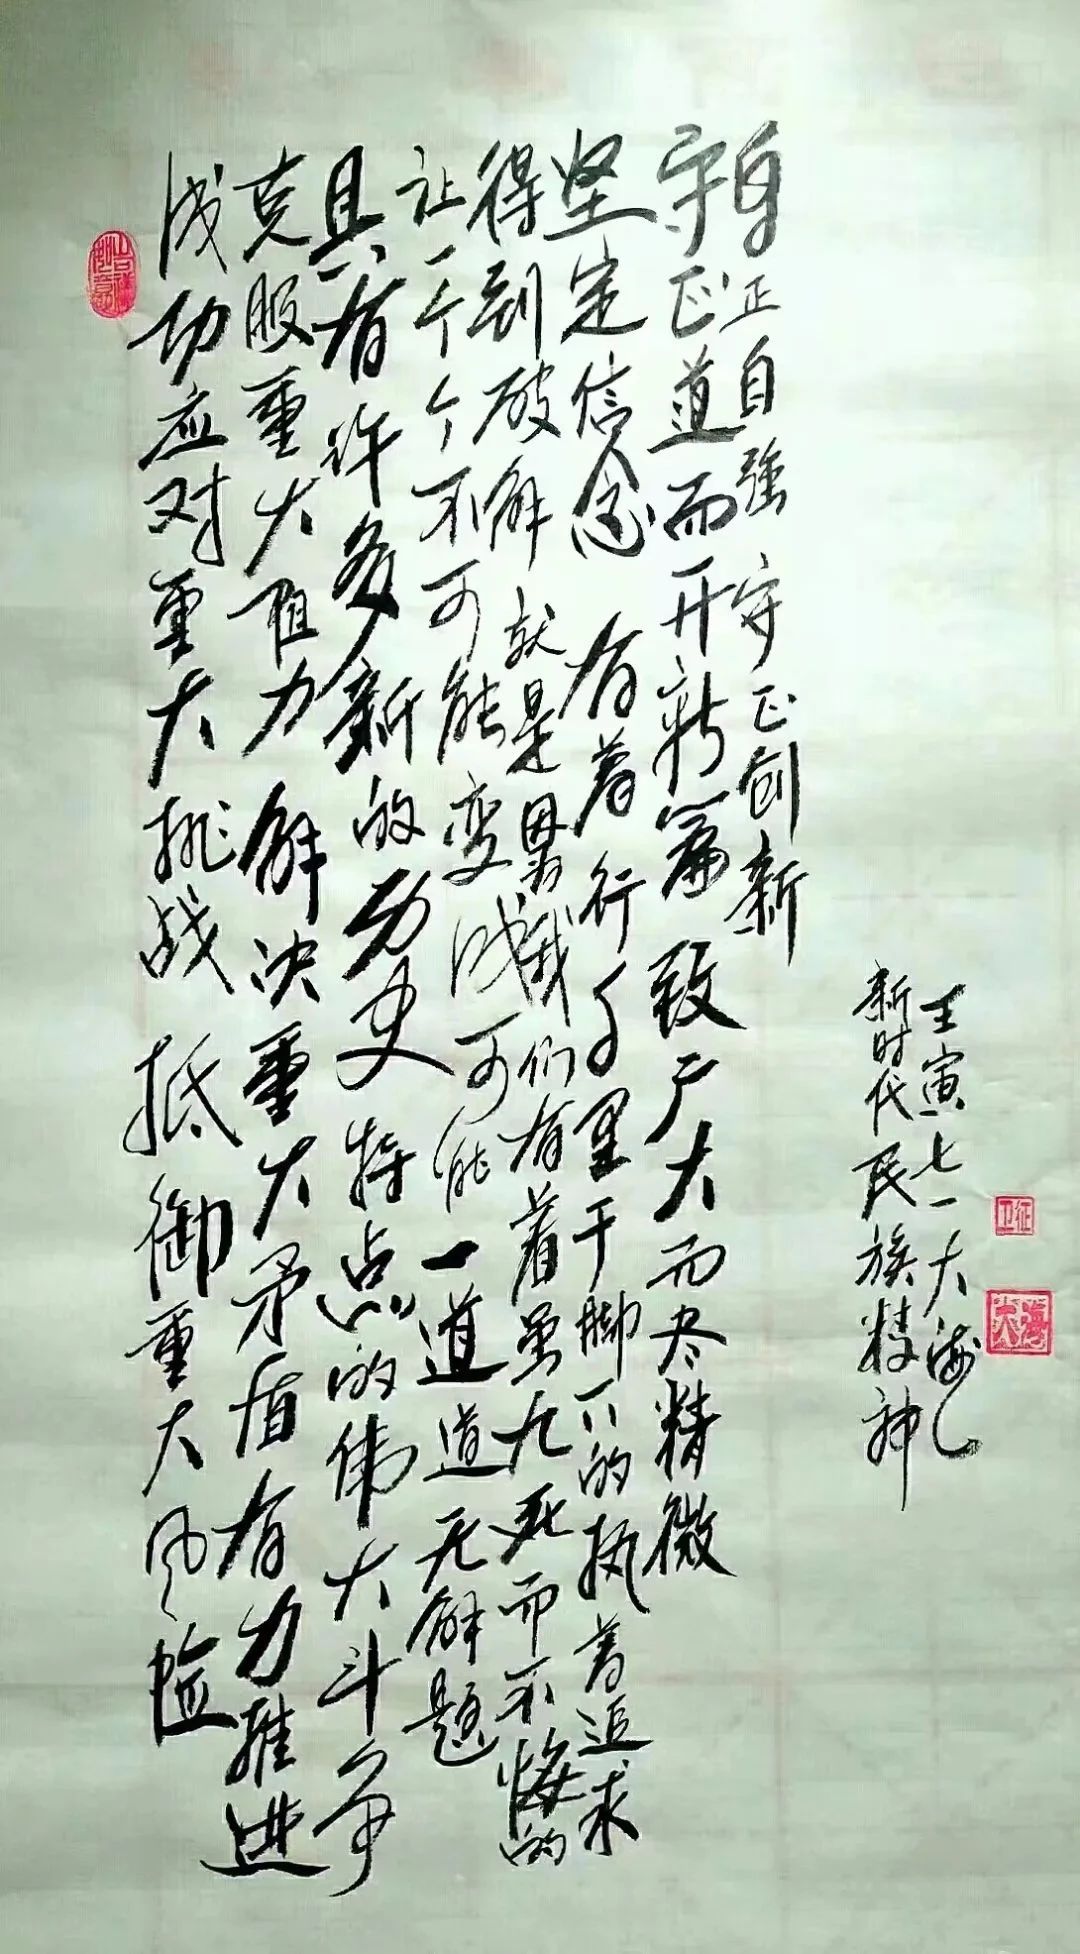 吉祥如意
成功应对重大挑战 抵御重大风险
克服重大阻力 解决重大矛盾 有力推进
具有许多新的历史特点的伟大斗争
让一个个不可能变成可能 一道道无解题
得到破解 就是因为我们有着虽九死而不悔的
坚定信念 有着行千里于脚下的执着追求
守正道而开新篇 致广大而尽精微
身正自强 守正创新
新时代民族精神
壬寅七一大海
大海